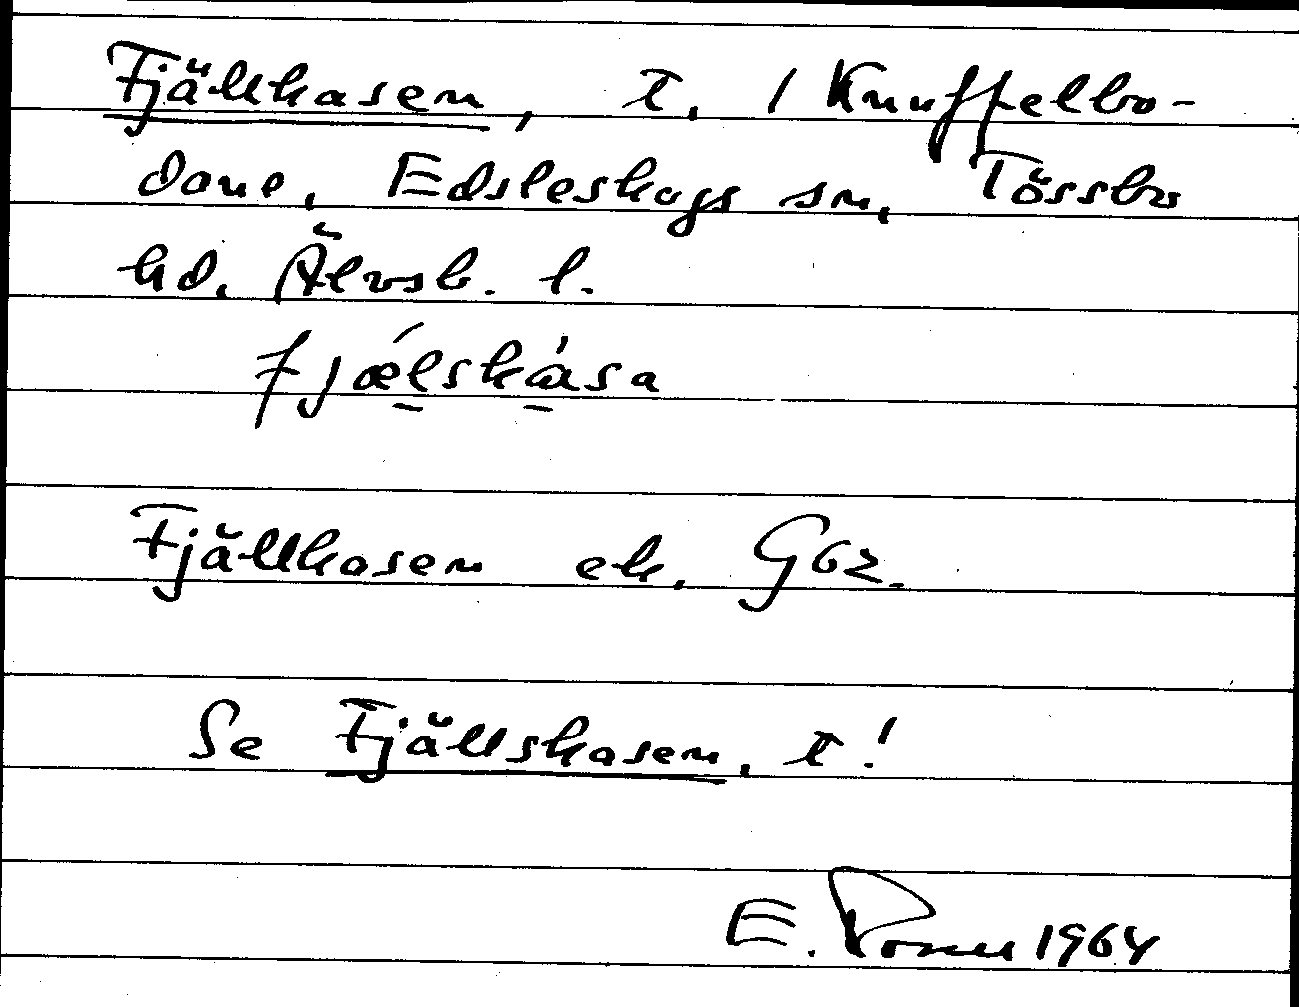 Fjällkasen, t. 1 Knuffelbo-
dane, Edsleskogs sn, Tössbo
hd. Älvsb. l.
fjælskåsa
Fjällkasen ek. G62.
Se Fjällskasen, t!
E. 1964